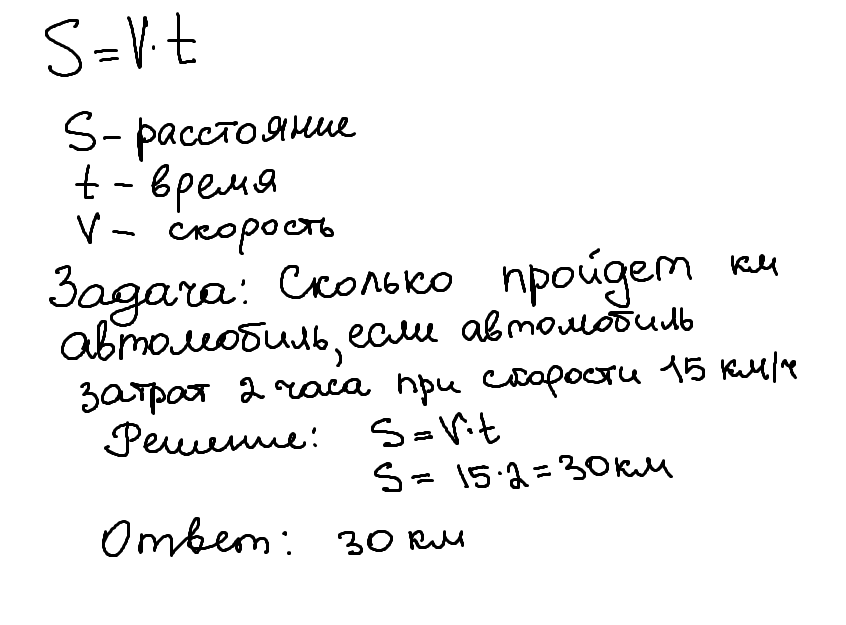 S=V·t
S - расстояние
t - время
V - скорость
Задача: Сколько пройдет км
автомобиль, если автомобиль
затрат 2 часа при скорости 15 км/ч
Решение: S=V·t
S= 15·2=30км
Ответ: 30 км